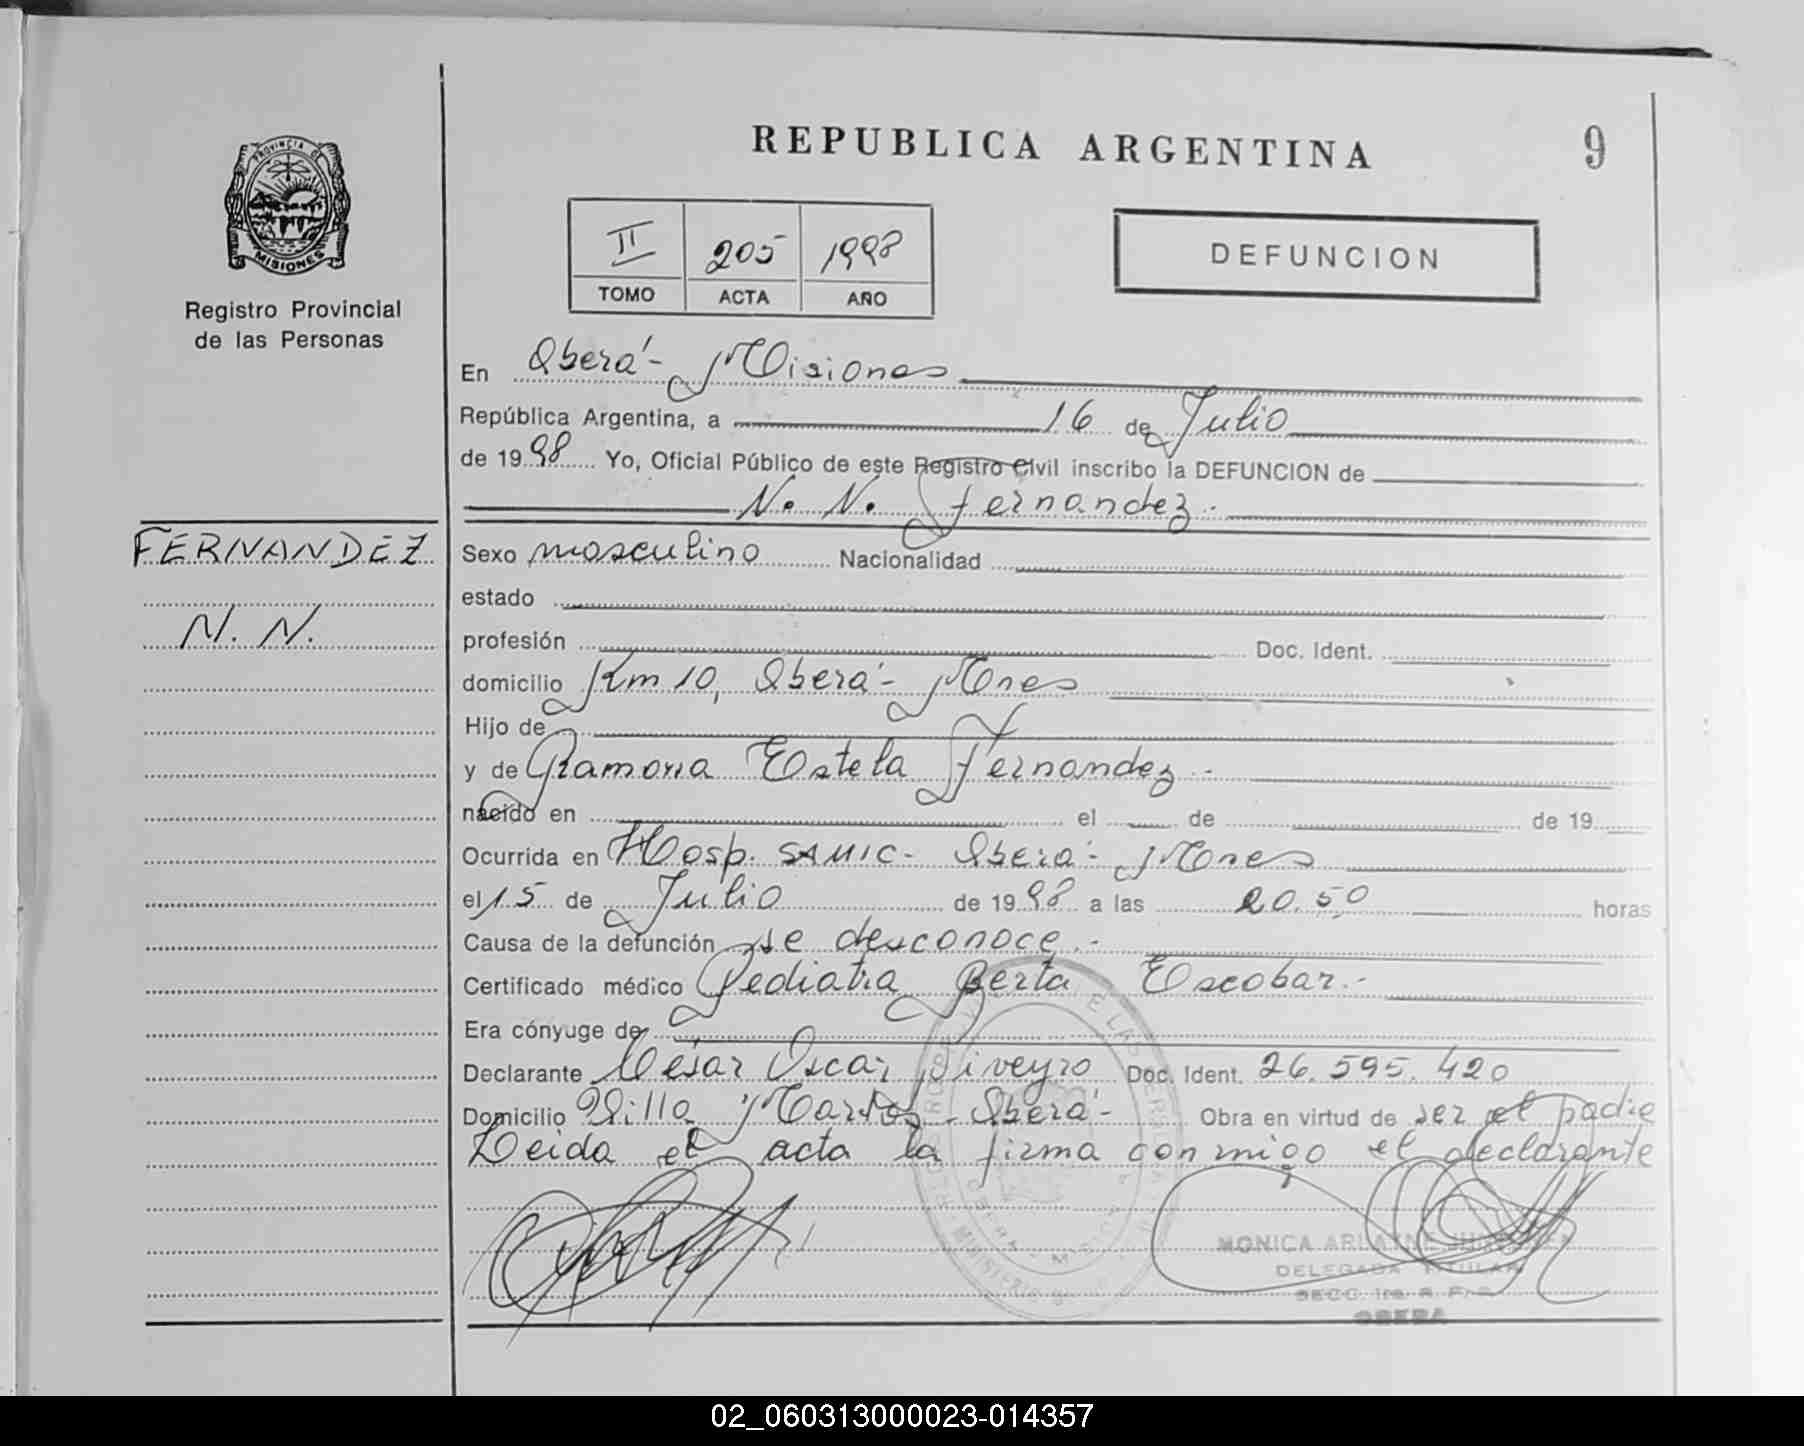 REPUBLICA ARGENTINA
9
PROVINCIA DE
MISIONES
Registro Provincial
de las Personas
II 205 1998
TOMO ACTA AÑO
DEFUNCION
En Oberá - Misiones
República Argentina, a 16 de Julio
de 19 98 Yo, Oficial Público de este Registro Civil inscribo la DEFUNCION de
N. N. Fernandez.
FERNANDEZ
N. N.
Sexo masculino Nacionalidad
estado
profesión Doc. Ident.
domicilio Km 10, Oberá - Mnes
Hijo de
y de Ramona Estela Fernandez.-
nacido en el de de 19
Ocurrida en Hosp. SAMIC - Oberá - Mnes
el 15 de Julio de 19 98 a las 20.50 horas
Causa de la defunción se desconoce.-
Certificado médico Pediatra Berta Escobar.-
Era cónyuge de
Declarante César Oscar Siveyro Doc. Ident. 26.595.420
Domicilio Villa Martos - Oberá - Obra en virtud de ser el padre
Leida el acta la firma conmigo el declarante
MONICA ARLAYNE
DELEGADA TITULAR
OBERA
02_060313000023-014357